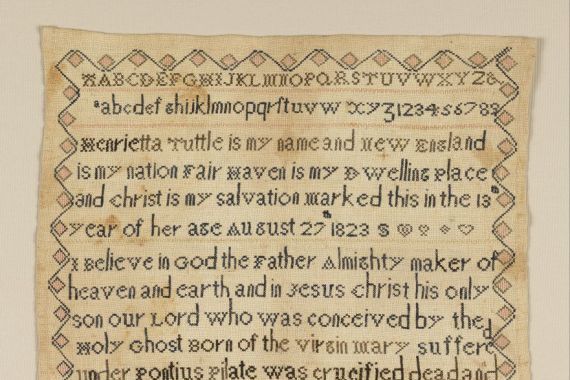 ABCDEFGHIJKLMNOPQRSTUVWXYZ&
abcdefghijklmnopqrstuvw xyz123456789
Henrietta Tuttle is my name and New England
is my nation Fair Haven is my Dwelling place
and Christ is my salvation Marked this in the 13th
year of her age August 27th 1823
I Believe in God the Father Almighty maker of
heaven and earth and in Jesus Christ his only
son our Lord who was conceived by the
Holy Ghost Born of the virgin Mary sufferd
under Pontius Pilate was crucified dead and